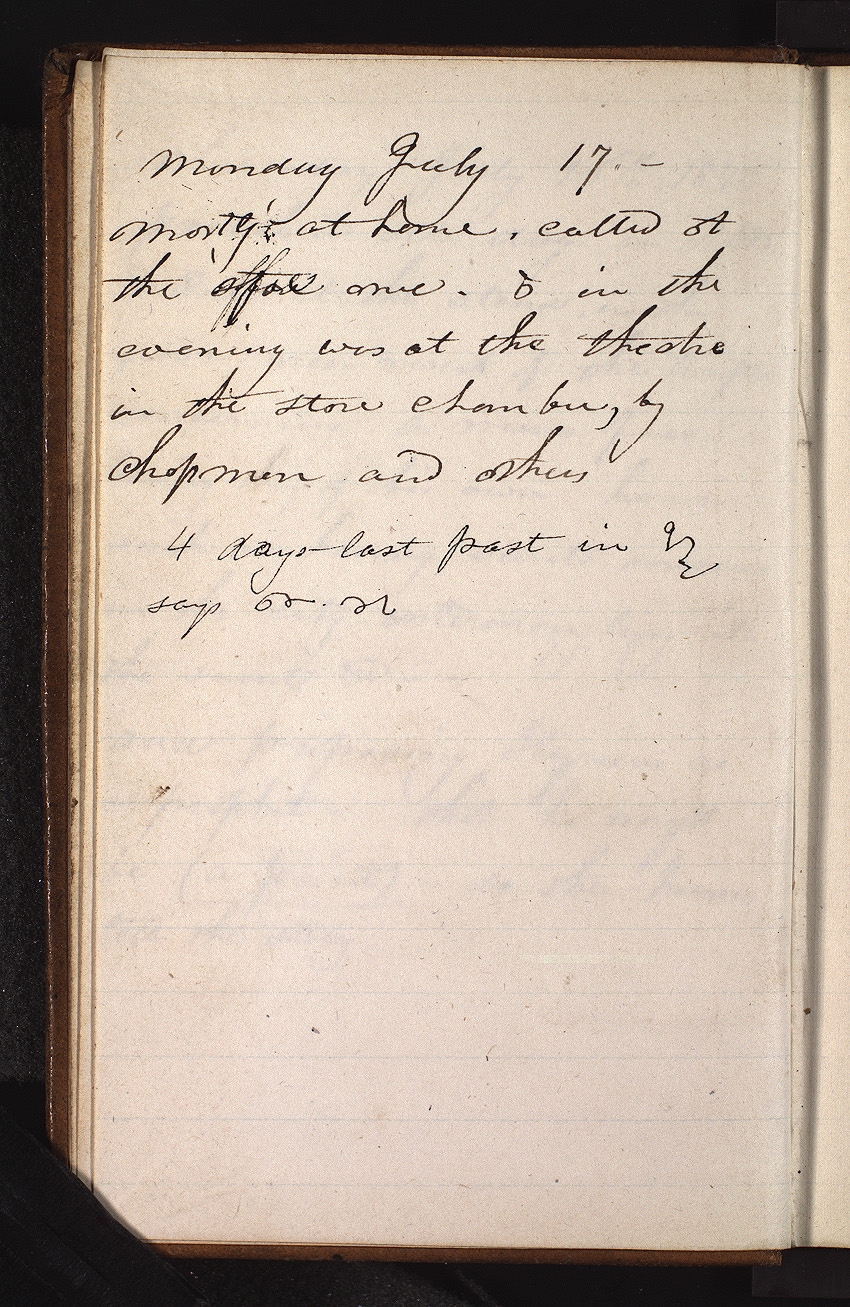 Monday July 17. -
Mostly at home. called at
the office once. & in the
evening was at the theatre
in the store chamber, by
Chapman and others
4 days last past in
says